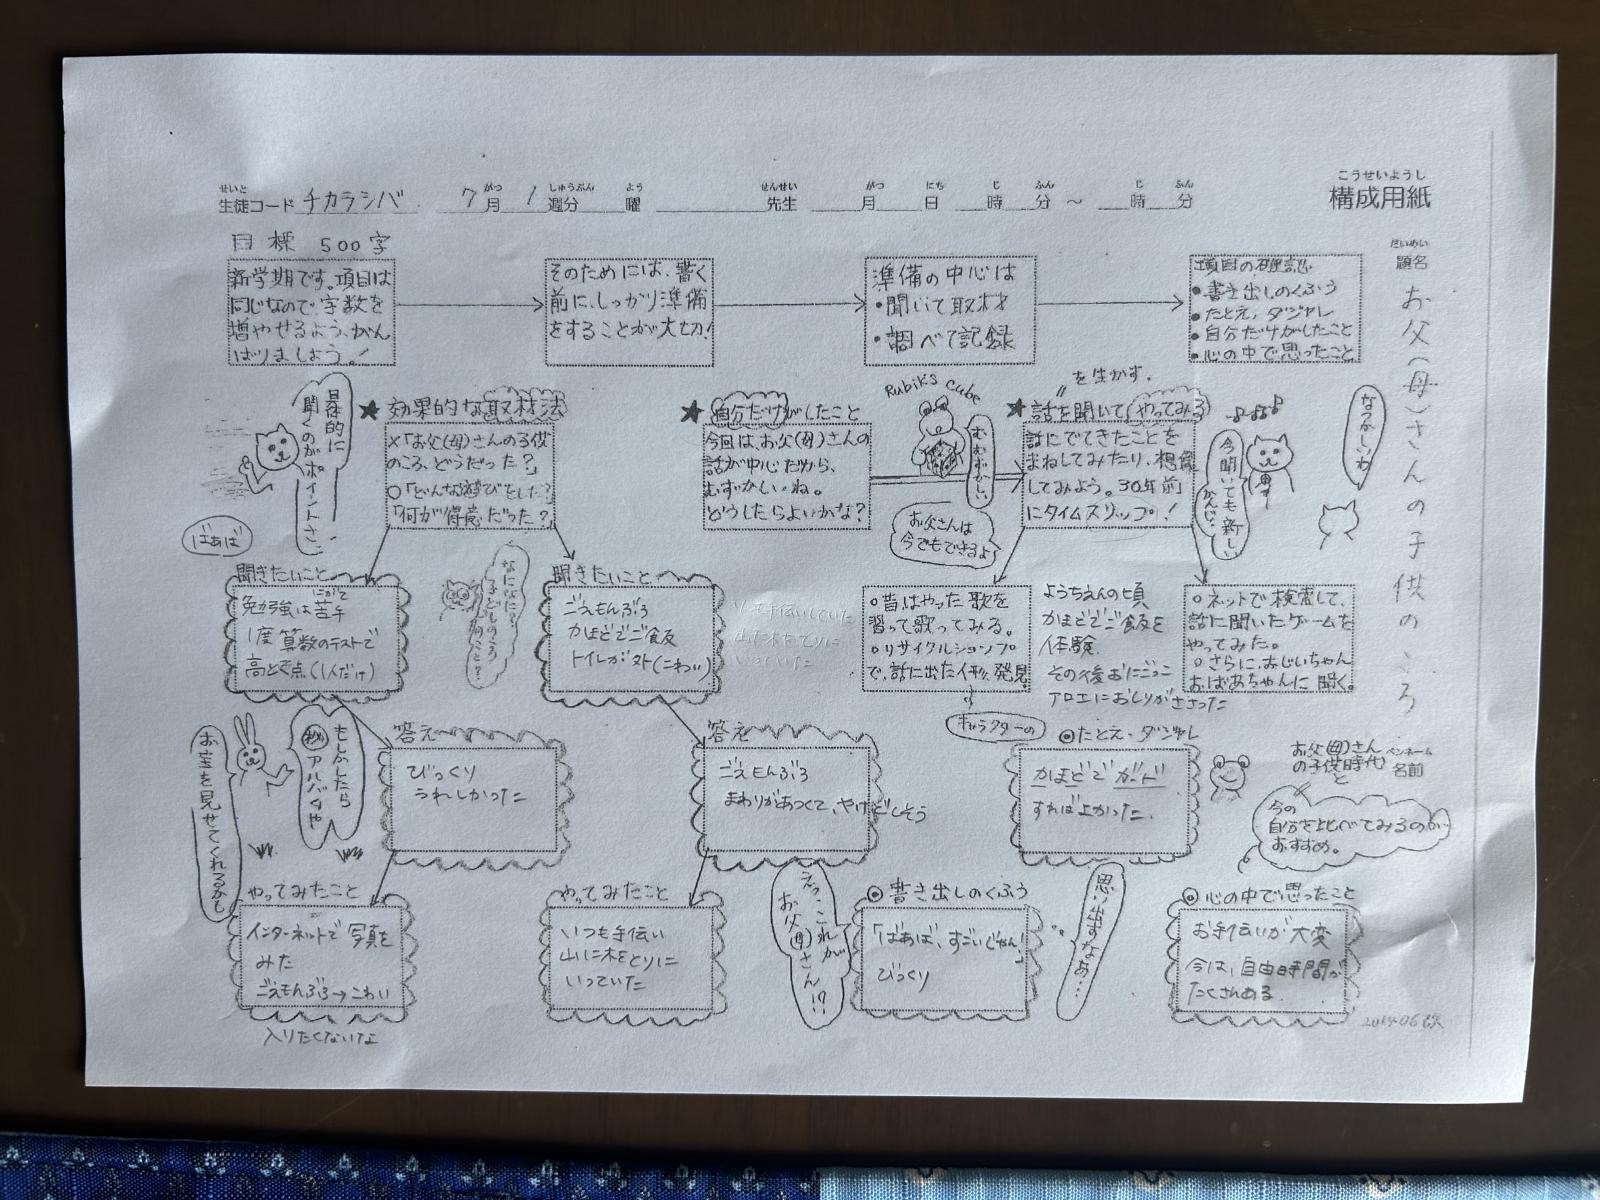 こうせいようし
構成用紙
せいと
生徒コード チカラシバ 7月 1週分 曜 先生 月 日 時 分 〜 時 分
がつ しゅうぶん よう せんせい がつ にち じ ふん じ ふん
だいめい
題名
お父(母)さんの子供のころ
目標 500字
新学期です。項目は
同じなので字数を
増やせるよう、がん
ばりましょう。!
そのためには、書く
前に、しっかり準備
をすることが大切!
準備の中心は
•聞いて取材
•調べて記録
項目の確認
•書き出しのくふう
•たとえ、ダジャレ
•自分だけがしたこと
•心の中で思ったこと
具体的に
聞くのがポイントさ
★効果的な取材法
×「お父(母)さんの子供
のころ、どうだった?」
○「どんな遊びをした?」
「何が得意だった?」
★自分だけがしたこと
今回は、お父(母)さんの
話が中心だから、
むずかしいね。
どうしたらよいかな?
Rubiks Cube
むむずかしい
お父さんは
今でもできるよ
〃を生かす.
★話を聞いてやってみる
話にでてきたことを
まねしてみたり、想像
してみよう。30年前
にタイムスリップ!
今聞いても新しい
かんじ
なつかしいわ
ばあば
聞きたいこと
にがて
勉強は苦手
1度算数のテストで
高とく点(1人だけ)
なになに?
子どものころ
のこと?
聞きたいこと
ごえもんぶろ
かまどでご飯
トイレが外(こわい)
いつも手伝いしていた
山に木をとりに
いっていた
○昔はやった歌を
習って歌ってみる。
○リサイクルショップ
で、話に出た人形発見
キャラクターの
ようちえんの頃
かまどでご飯を
体験.
その後おにごっこ
アロエにおしりがささった
○ネットで検索して、
話に聞いたゲームを
やってみた。
○さらに、おじいちゃん
おばあちゃんに聞く。
もしかしたら
㊙アルバムや
お宝を見せてくれるかも
答え
びっくり
うれしかった
答え
ごえもんぶろ
まわりがあつくて、やけどしそう
◎たとえ・ダジャレ
かまどでガード
すれば よかった.
ペンネーム
名前
お父(母)さん
の子供時代
と
今の
自分を比べてみるのが
おすすめ。
やってみたこと
インターネットで写真を
みた
ごえもんぶろ→こわい
入りたくないな
やってみたこと
いつも手伝い
山に木をとりに
いっていた
えっこれが
お父(母)さん!?
◎書き出しのくふう
「ばあば、すごいじゃん!」
びっくり
思い出すなあ…
◎心の中で思ったこと
お手伝いが大変
今は、自由時間が
たくさんある.